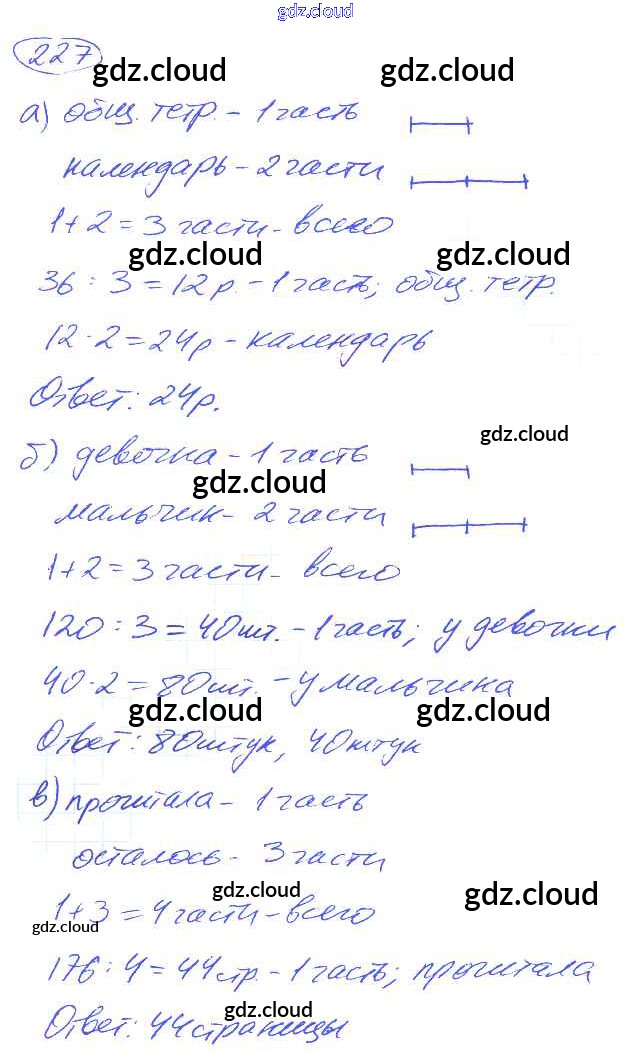 gdz.cloud
227
gdz.cloud gdz.cloud
а) общ. тетр. - 1 часть
календарь - 2 части
1+2=3 части - всего
gdz.cloud gdz.cloud
36 : 3 = 12р. - 1 часть; общ. тетр.
12 · 2 = 24р - календарь
Ответ: 24р.
gdz.cloud
б) девочка - 1 часть
gdz.cloud
мальчик - 2 части
1+2=3 части - всего
120 : 3 = 40шт. - 1 часть; у девочки
40·2=80шт. - у мальчика
gdz.cloud gdz.cloud
Ответ: 80штук, 40штук
в) прочитала - 1 часть
осталось - 3 части
gdz.cloud gdz.cloud
1+3=4 части - всего
gdz.cloud
176:4=44стр. - 1 часть; прочитала
gdz.cloud
Ответ: 44страницы